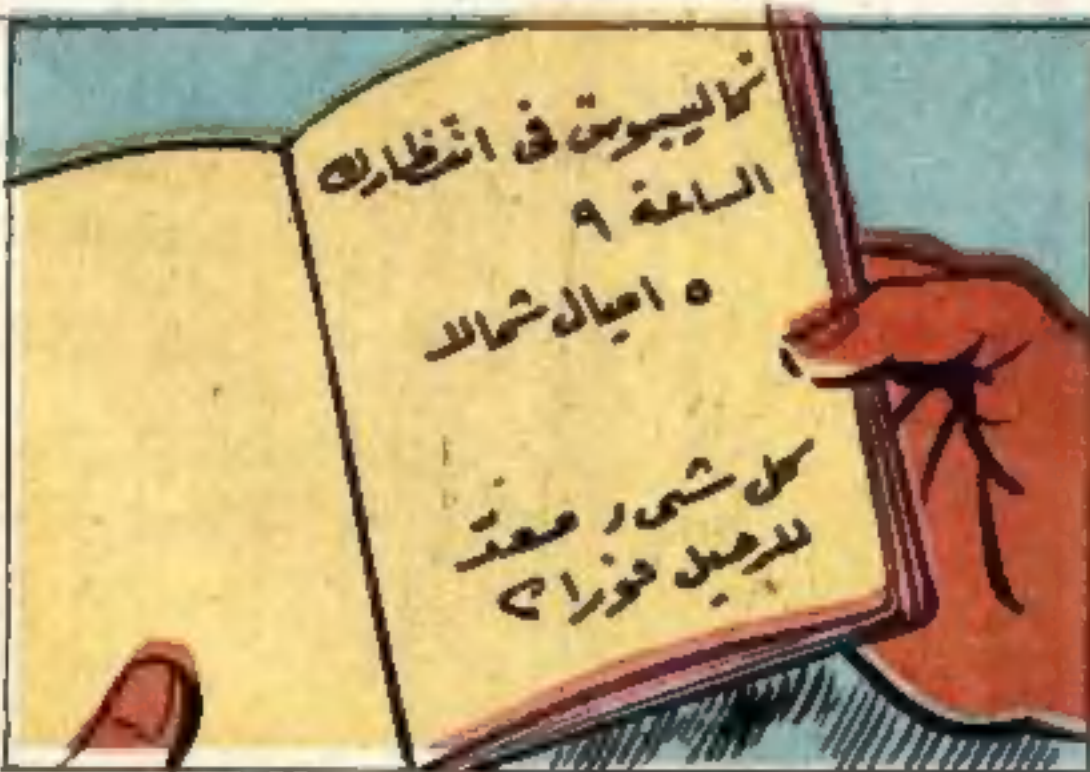 كاليبوس في انتظارك
الساعة ٩
٥ اميال شمالا
كل شىء معد
للرحيل فورا